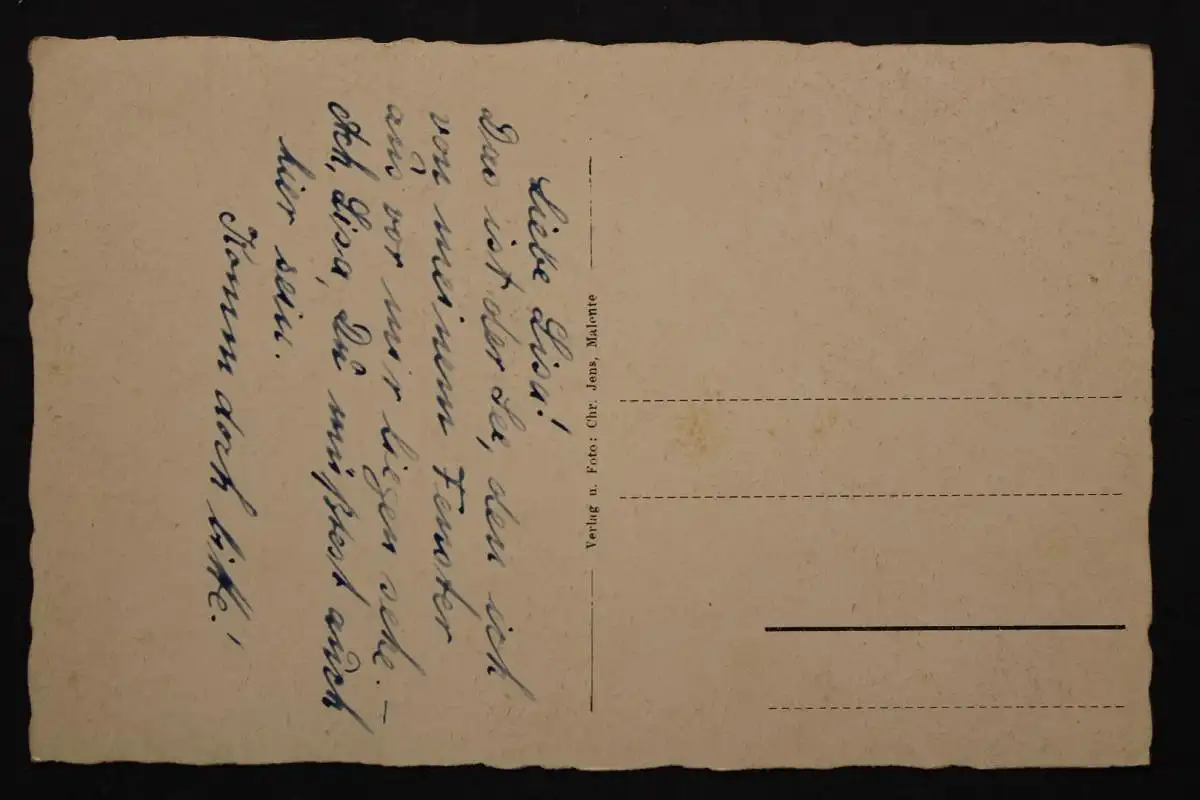 Liebe Lisa!
Das ist der See, den ich
von meinem Fenster
aus vor mir liegen sehe. –
Ach, Lisa, Du müßtest auch
hier sein.
Komm doch bitte!
Verlag u. Foto: Chr. Jens, Malente